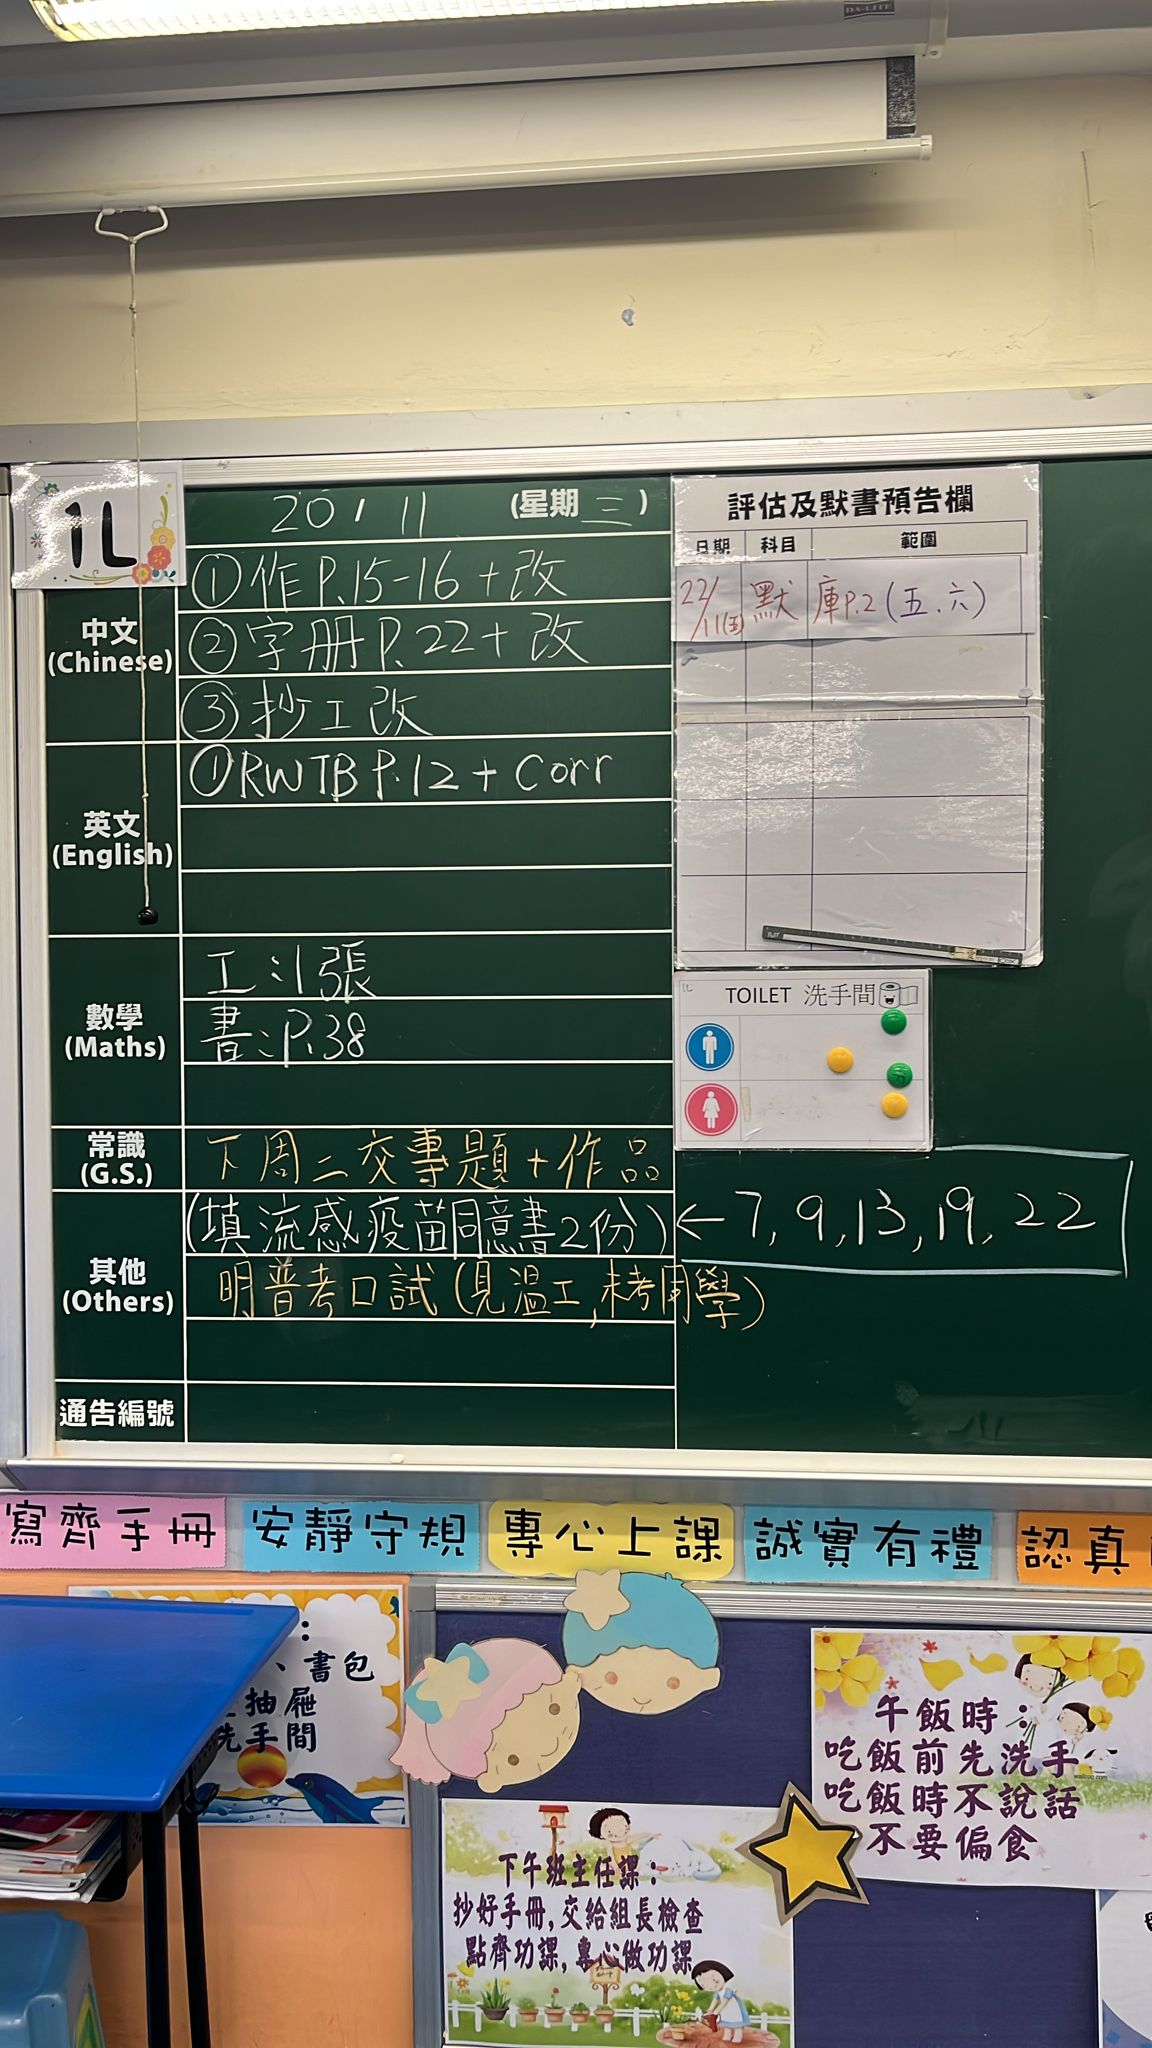 DA-LITE
1L
20 / 11 (星期 三)
中文
(Chinese)
①作P.15-16 + 改
②字册P.22 + 改
③抄工改
英文
(English)
①RWTB P.12 + Corr
數學
(Maths)
工:1張
書:P.38
常識
(G.S.)
下周二交專題 + 作品
其他
(Others)
(填流感疫苗同意書2份) ← 7, 9, 13, 19, 22
明普考口試 (見溫工, 未考同學)
通告編號
評估及默書預告欄
日期 科目 範圍
22/11(五) 默 庫P.2 (五、六)
1L
TOILET 洗手間
寫齊手冊
安靜守規
專心上課
誠實有禮
認真
:
、書包
抽屜
洗手間
午飯時:
吃飯前先洗手
吃飯時不說話
不要偏食
下午班主任課:
抄好手冊,交給組長檢查
點齊功課,專心做功課